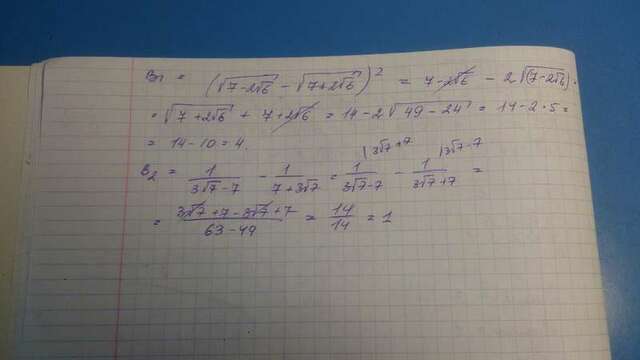 В1 = (√7-2√6 - √7+2√6)² = 7-2√6 - 2√(7-2√6) ·
· √7+2√6 + 7+2√6 = 14-2√49-24 = 14-2·5 =
= 14-10=4.
|3√7+7 |3√7-7
В2 = 1/(3√7-7) - 1/(7+3√7) = 1/(3√7-7) - 1/(3√7+7) =
= (3√7+7-3√7+7)/(63-49) = 14/14 = 1